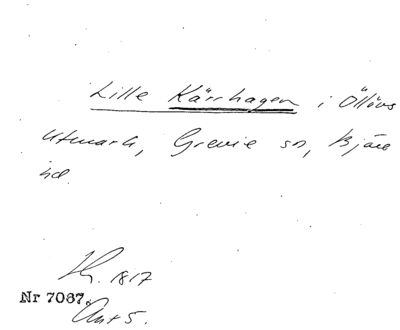 Lille Kärrhagen i Öllövs
utmark, Grevie sn, Bjäre
hd.
H. 1817
Nr 7087.
Akt 5.